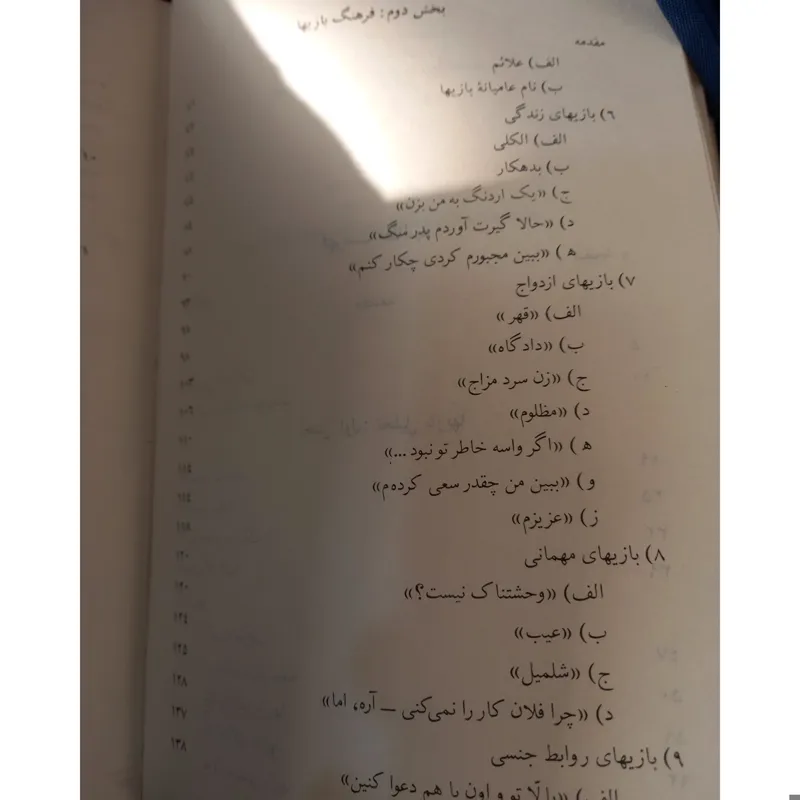 بخش دوم: فرهنگ بازیها
مقدمه
الف) علائم
ب) نام عامیانهٔ بازیها
۶) بازیهای زندگی
الف) الکلی
ب) بدهکار
ج) «یک اردنگ به من بزن»
د) «حالا گیرت آوردم پدرسگ»
ه) «ببین مجبورم کردی چکار کنم»
۷) بازیهای ازدواج
الف) «قهر»
ب) «دادگاه»
ج) «زن سرد مزاج» ۱۰۳
د) «مظلوم» ۱۰۶
ه) «اگر واسه خاطر تو نبود...» ۱۱۰
و) «ببین من چقدر سعی کرده‌م» ۱۱۴
ز) «عزیزم»
۸) بازیهای مهمانی ۱۲۰
الف) «وحشتناک نیست؟» ۱۲۰
ب) «عیب» ۱۲۴
ج) «شلمیل» ۱۲۵
د) «چرا فلان کار را نمی‌کنی — آره، اما» ۱۲۸
۹) بازیهای روابط جنسی ۱۳۷
الف) «یالّا تو و اون با هم دعوا کنین» ۱۳۸